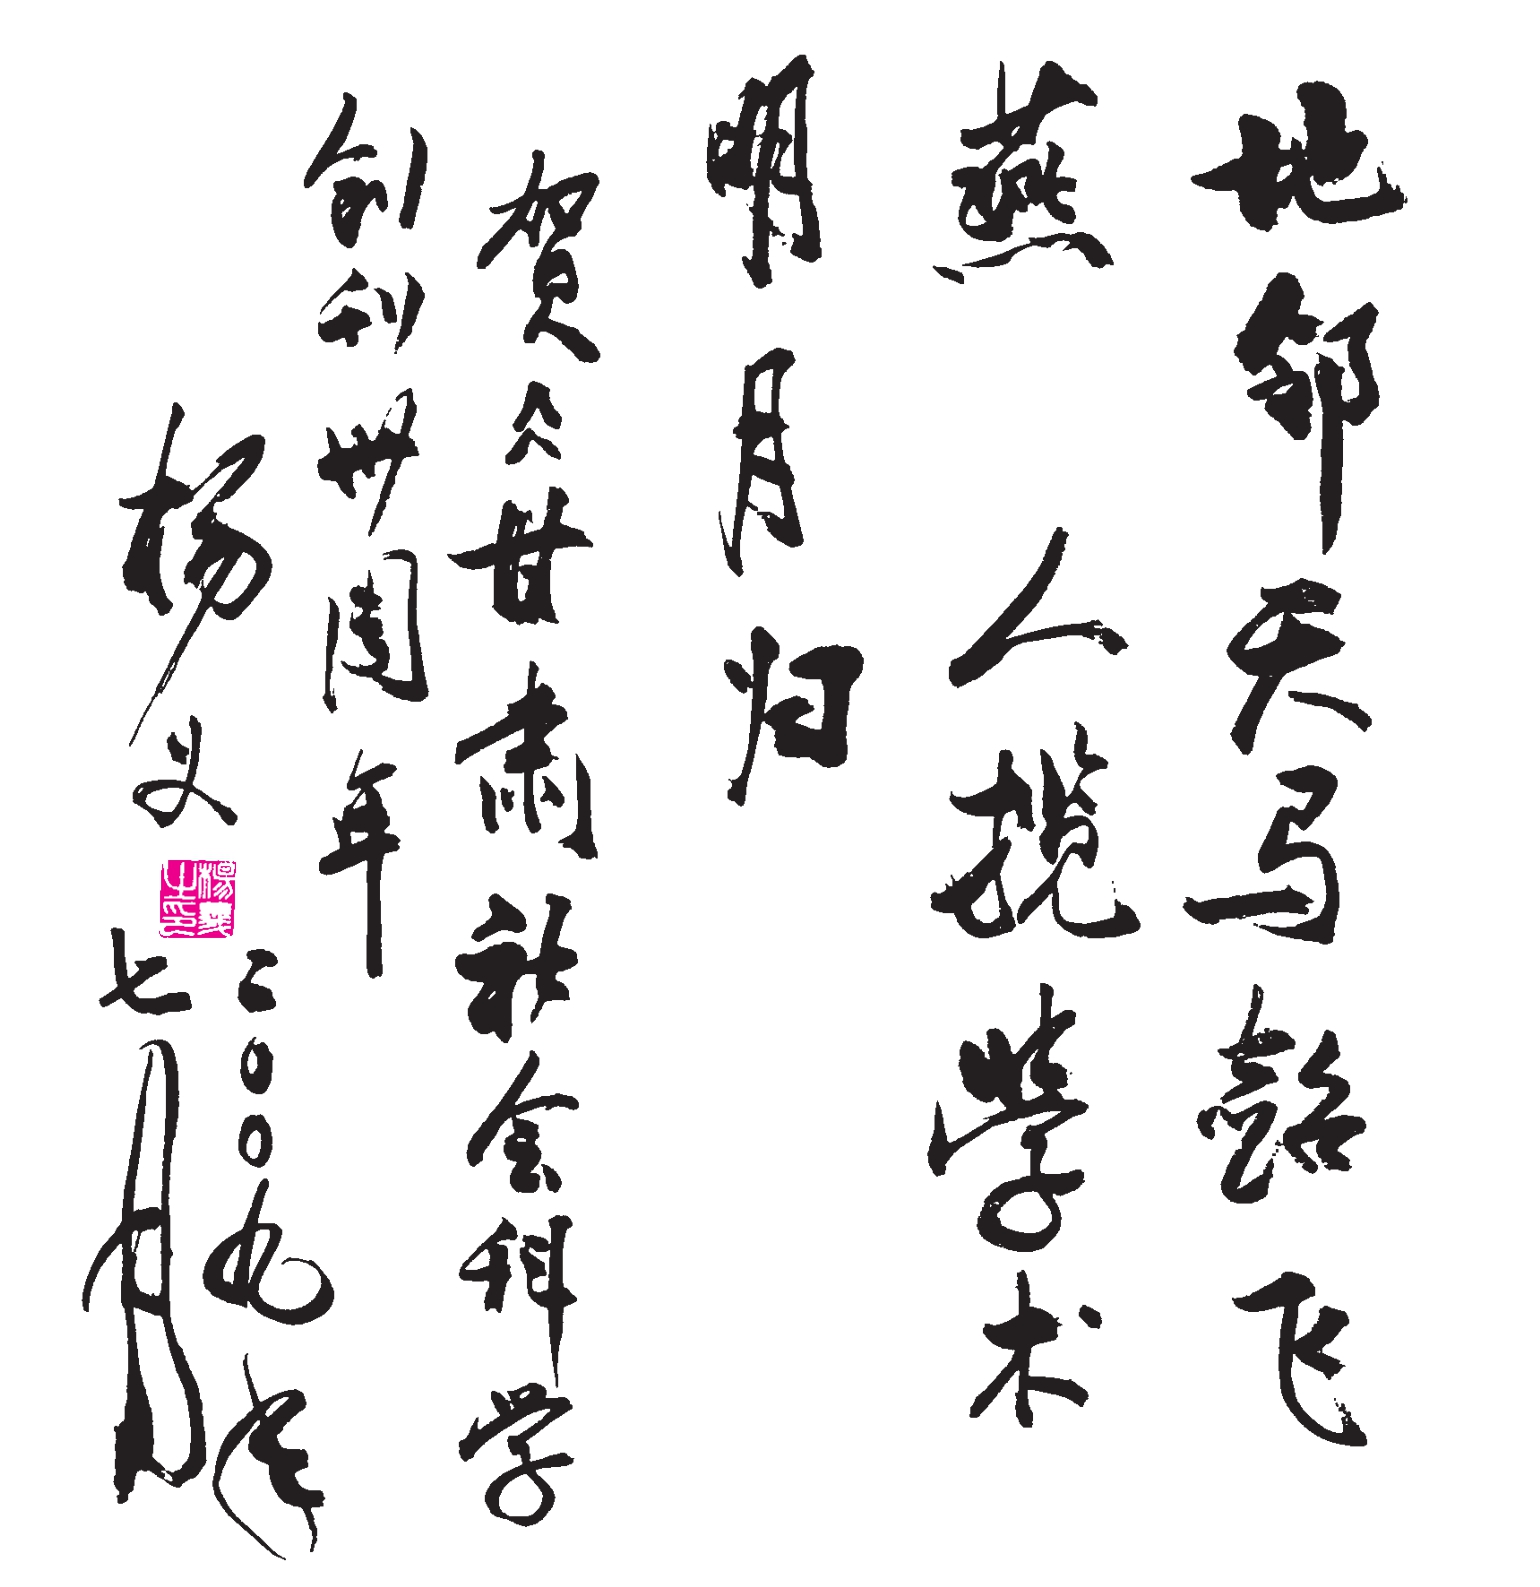 地邻天马飞
燕 人揽学术
明月归
贺《甘肃社会科学
创刊卅周年
杨义
楊義之印
二〇〇九年
七月